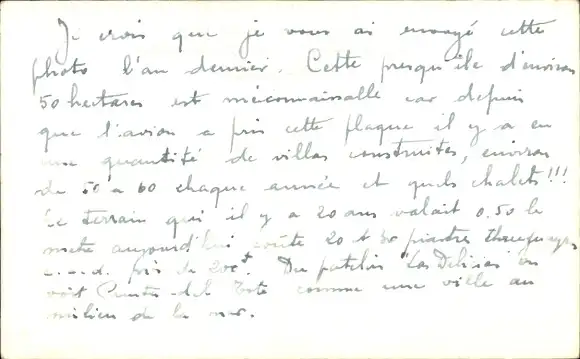 Je crois que je vous ai envoyé cette
photo l'an dernier. Cette presqu'ile d'environ
50 hectares est méconnaissable car depuis
que l'avion a pris cette plaque il y a eu
une quantité de villas construites, environ
de 50 à 60 chaque année et quels chalets!!!
Le terrain qui il y a 20 ans valait 0.50 le
metre aujourd'hui coûte 20 à 30 piastres
c.-à-d. près de 200 Du patelin "Las Delicias" on
voit Punta del Este comme une ville au
milieu de la mer.